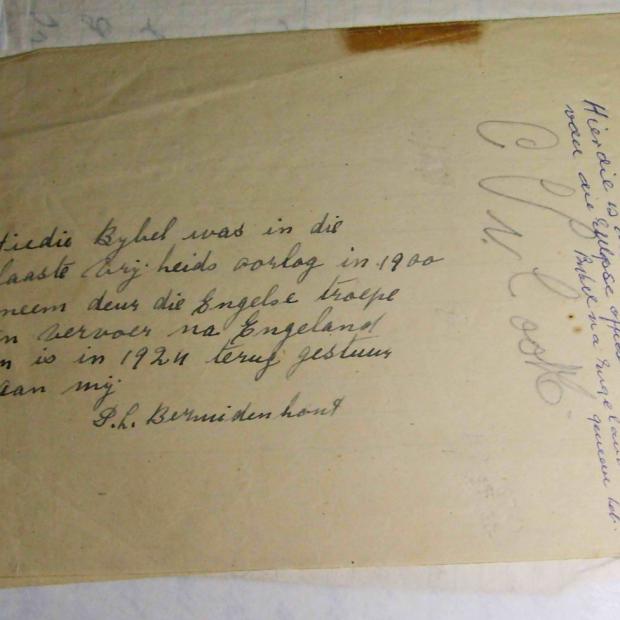 Hierdie Bybel was in die
laaste vrij heids oorlog in 1900
neem deur die Engelse troepe
en vervoer na Engeland
en is in 1924 terug gestuur
aan mij
P.L. Bezuidenhout
Hierdie is
van die Engelse offisier
Bybel na Engeland
geneem het.
Cook